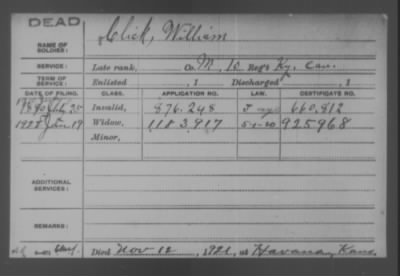 DEAD
Click, William
NAME OF SOLDIER:
SERVICE: Late rank, Co. M, 10 Reg't Ky. Cav.
TERM OF SERVICE: Enlisted , 1 Discharged , 1
DATE OF FILING. CLASS. APPLICATION NO. LAW. CERTIFICATE NO.
1890 July 25 Invalid, 876.248 660,812
Jan. 19 Widow, 1183.917 5-1-20 925968
Minor,
ADDITIONAL SERVICES:
REMARKS:
Died Nov 12, 1921, at Havana, Kans.